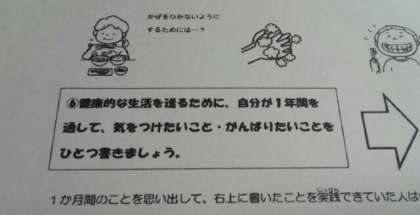 かぜをひかないように
するためには…？
⑥健康的な生活を送るために、自分が１年間を
通して、気をつけたいこと・がんばりたいことを
ひとつ書きましょう。
１か月間のことを思い出して、右上に書いたことを実践できていた人は